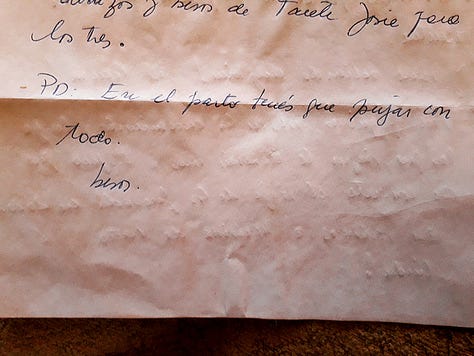 abrazos y besos de Tarele José para
los tres.
- PD: En el parto tenés que pujar con
todo.
besos.